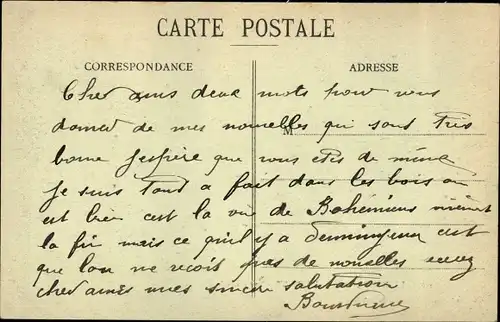 CARTE POSTALE
CORRESPONDANCE
ADRESSE
M
Cher amis deux mots pour vous
donner de mes nouvelles qui sont très
bonne Jespère que vous etes de même
Je suis tout a fait dans les bois on
est bien est la vie de Bohémiens
la fin mais ce quil y a est
que lon ne reçoit pas de nouvelles
cher amis mes sincère salutation